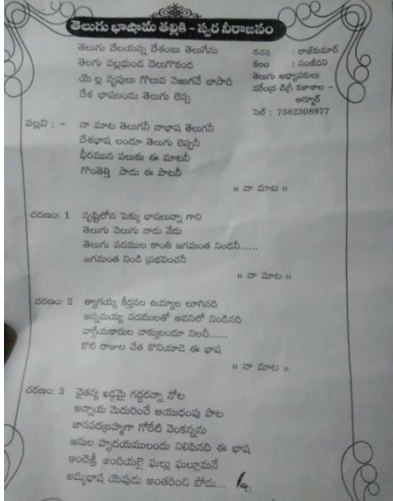 తెలుగు భాషామ తల్లికి - స్వర నీరాజనం
తెలుగు దేలయన్న దేశంబు తెలుగేను
తెలగు వల్లభుండ దెలుగొకండ
యెల్ల నృపులు గొలువ నెఱుగవే బాసాడి
దేశ భాషలందు తెలుగు లెస్స
రచన : రాజ్‌కుమార్
కలం : సంజీవని
తెలుగు అధ్యాపకులు
నరేంద్ర డిగ్రీ కళాశాల -
ఆర్మూర్
సెల్ : 7382308977
పల్లవి : - నా మాట తెలుగనీ నాభాష తెలుగనీ
దేశభాష లందూ తెలుగు లెస్సనీ
ధీరమున పలుకు ఈ మాటనీ
గొంతెత్తి పాడు ఈ పాటనీ
॥ నా మాట ॥
చరణం: 1 సృష్టిలోన పెక్కు భాషలున్నా గాని
తెలుగు వెలుగు నాడు నేడు
తెలుగు పదముల కాంతి జగమంత నిండనీ......
జగమంత నిండి ప్రభవించనీ
॥ నా మాట ॥
చరణం: 2 త్యాగయ్య కీర్తనల ఉయ్యాల లూగినది
అన్నమయ్య పదములతో అవనిలో నిండినది
వాగ్గేయకారుల వాక్కులందూ నిలచీ......
కొలి రాజుల చేత కొనియాడె ఈ భాష
॥ నా మాట ॥
చరణం: 3 చైతన్య ఖడ్గమై గద్దరన్నా నోట
అన్యాయ మెదురించే ఆయుధంపు పాట
జానపదబ్రహ్మగా గోరేటి వెంకన్నను
జనుల హృదయములందు నిలిపినది ఈ భాష
అందెశ్రీ అందియలై ఘల్లు ఘల్లూమనే
అమ్మభాష యెపుడు అంతరించి పోదు...